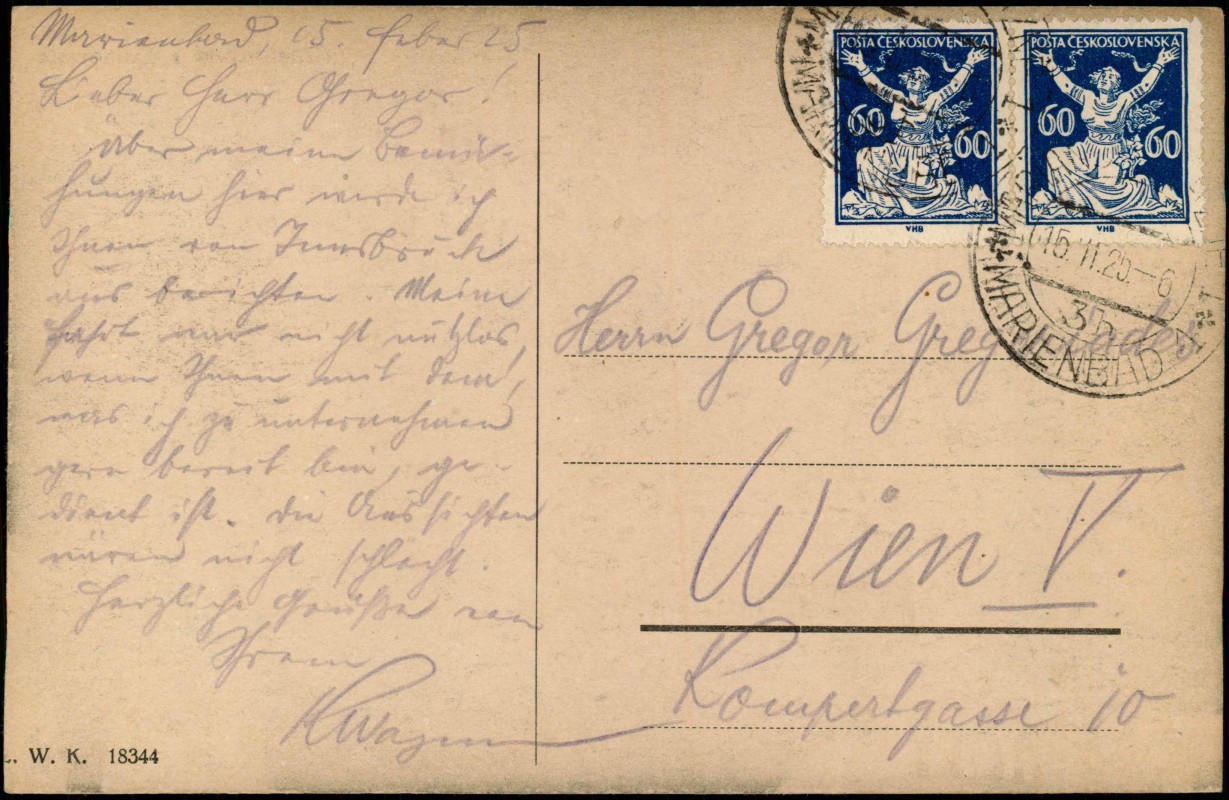 Marienbad, 15 Feber 25
Lieber Herr Gregor!
Über meine Bemü-
hungen hier werde ich
Ihnen von Innsbruck
aus berichten. Meine
Fahrt war nicht nutzlos,
wenn Ihnen mit dem,
was ich zu unternehmen
gern bereit bin, ge-
dient ist. Die Aussichten
wären nicht schlecht.
Herzliche Grüße von
Ihrem
KWagner
W. K. 18344
POŠTA ČESKOSLOVENSKÁ
60 60
VHB
POŠTA ČESKOSLOVENSKÁ
60 60
VHB
15.II.25.-6
3b
MARIENBAD 1
Herrn Gregor
Wien V.
Kompertgasse 10